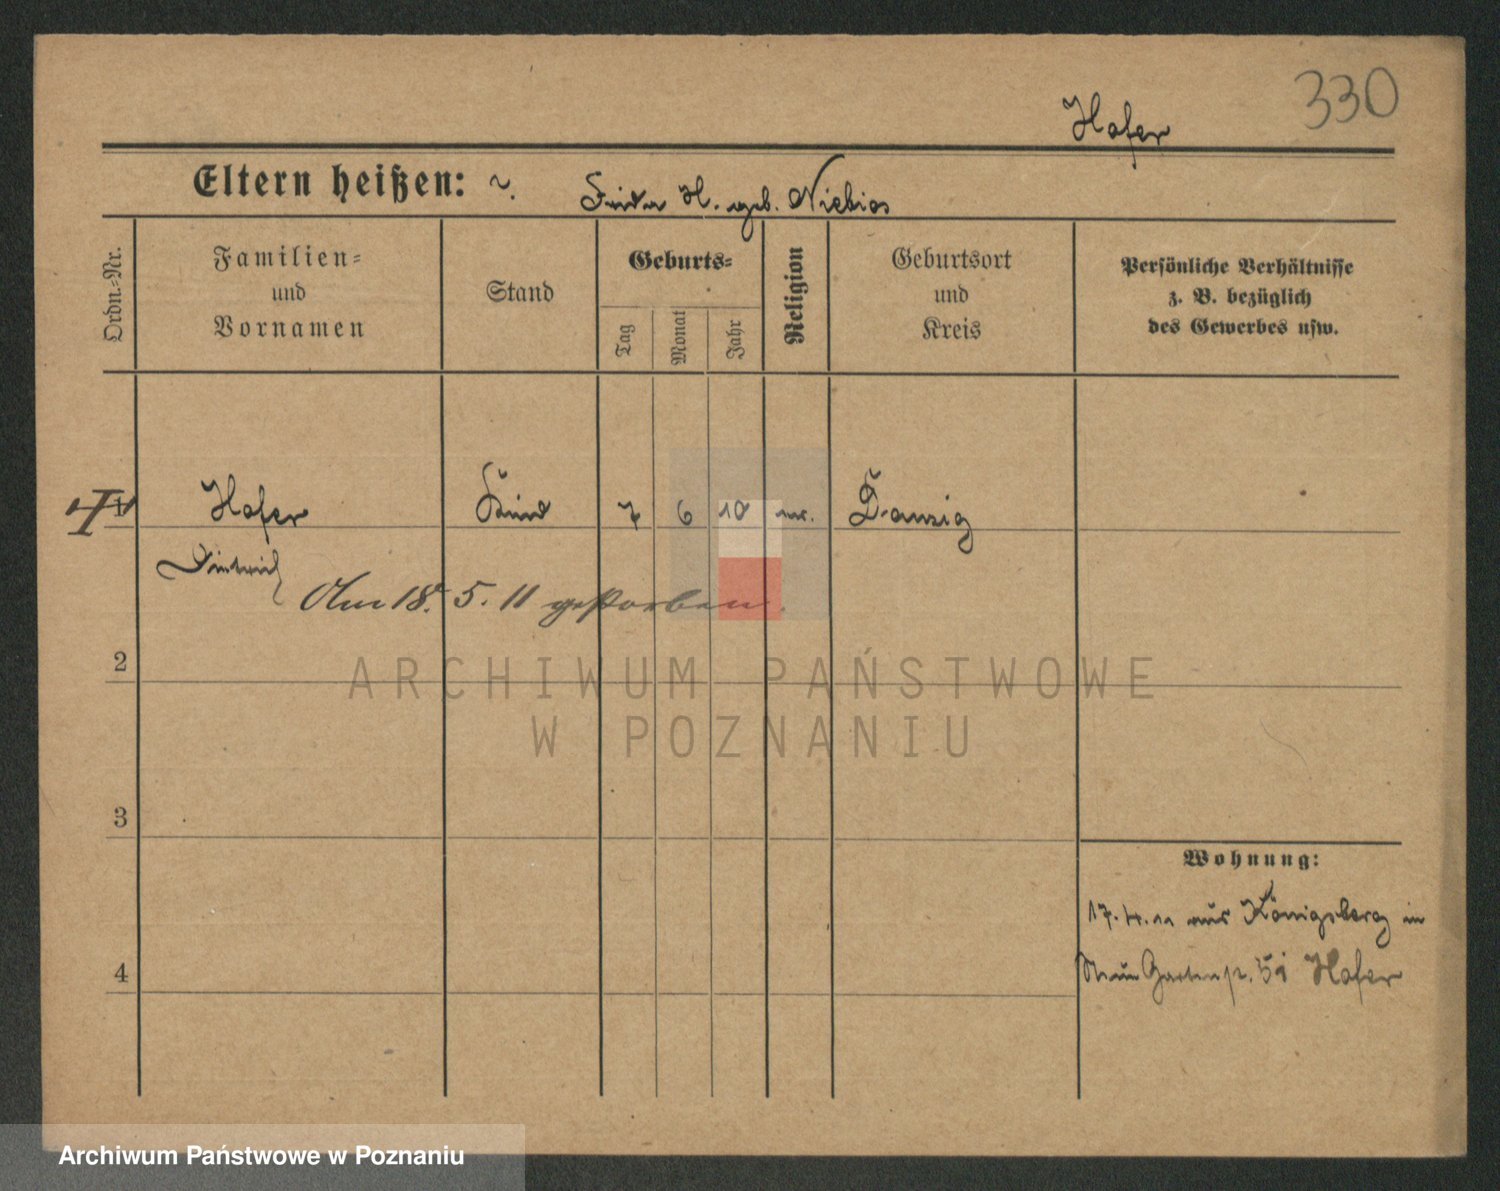 330
Hofer
Eltern heißen: ?. Frieda H. geb. Niebios
Ordn.-Nr.
Familien-
und
Vornamen
Stand
Geburts-
Tag
Monat
Jahr
Religion
Geburtsort
und
Kreis
Persönliche Verhältnisse
z. B. bezüglich
des Gewerbes usw.
1 Hofer Kind 7 6 10 Danzig
Am 18. 5. 11 gestorben.
2
ARCHIWUM PAŃSTWOWE
W POZNANIU
3
Wohnung:
17. 4. 11 aus Königsberg in
4
Neue Gartenstr. Hofer
Archiwum Państwowe w Poznaniu